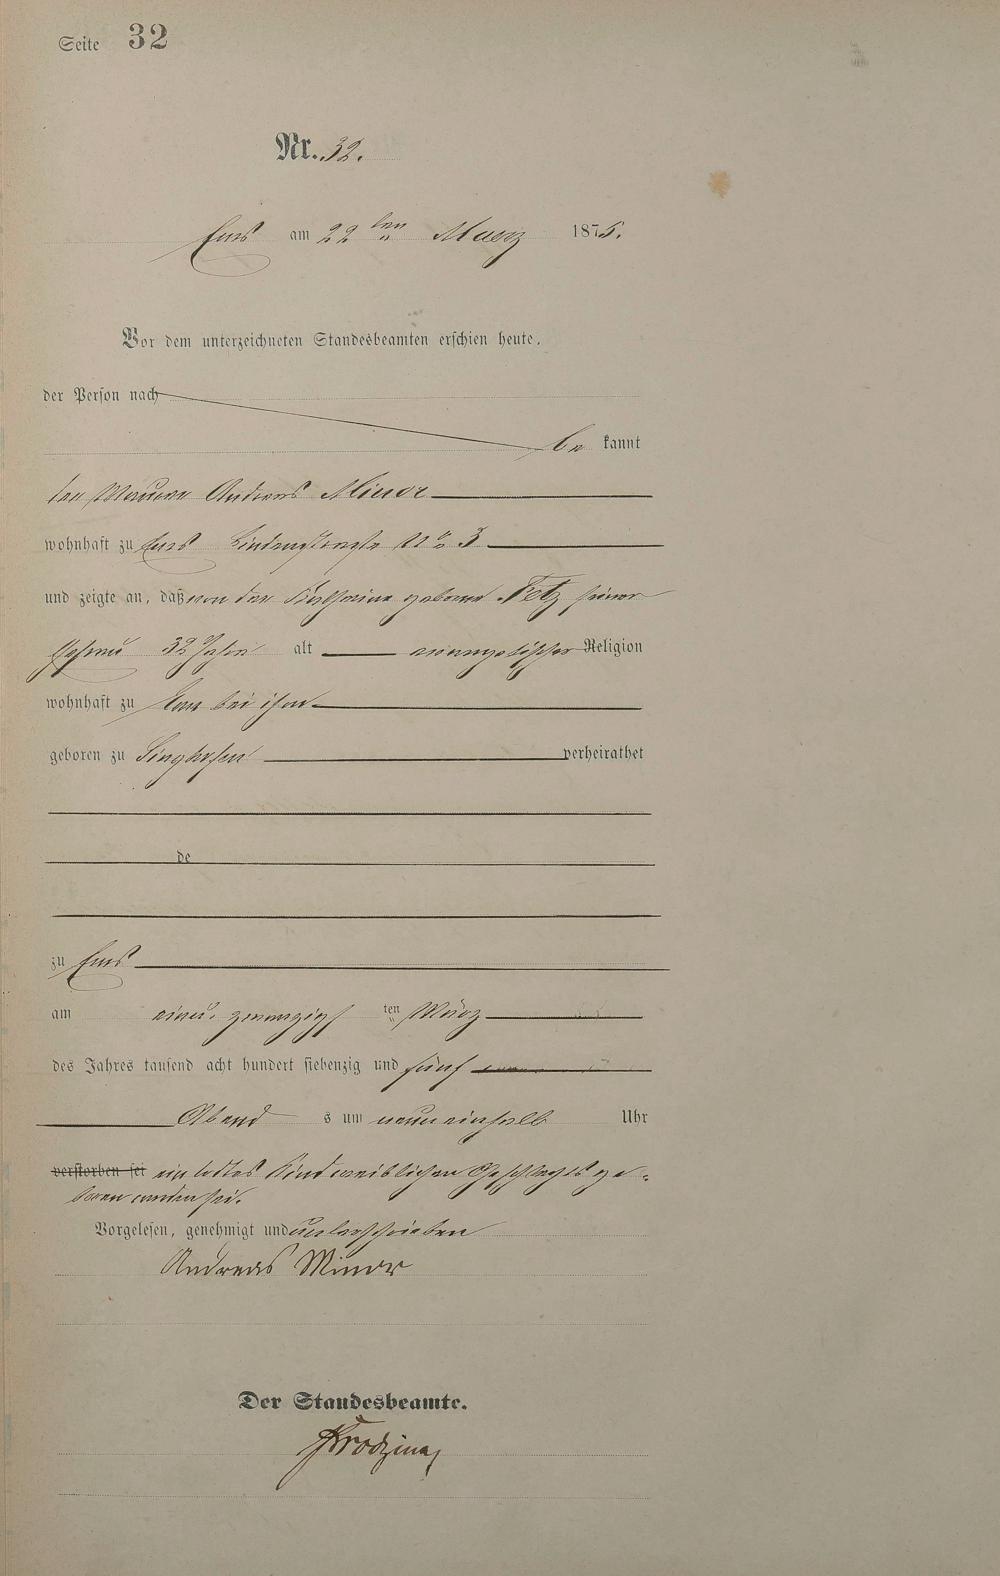 Seite 32
Nr. 32.
Ems am 22ten Maerz 1875.
Vor dem unterzeichneten Standesbeamten erschien heute,
der Person nach
be kannt
der Maurer Andreas Minor
wohnhaft zu Ems Lindenstraße No 3
und zeigte an, daß von der Katharine geborne Fetz seiner
Ehefrau 32 Jahre alt evangelischer Religion
wohnhaft zu Ems bei ihm
geboren zu Singhofen verheirathet
de
zu Ems
am einu. zwanzigs ten März
des Jahres tausend acht hundert siebenzig und fünf
Abend s um neuneinhalb Uhr
verstorben sei ein todtes Kind weiblichen Geschlechts ge-
boren worden sei.
Vorgelesen, genehmigt und unterschrieben
Andreas Minor
Der Standesbeamte.